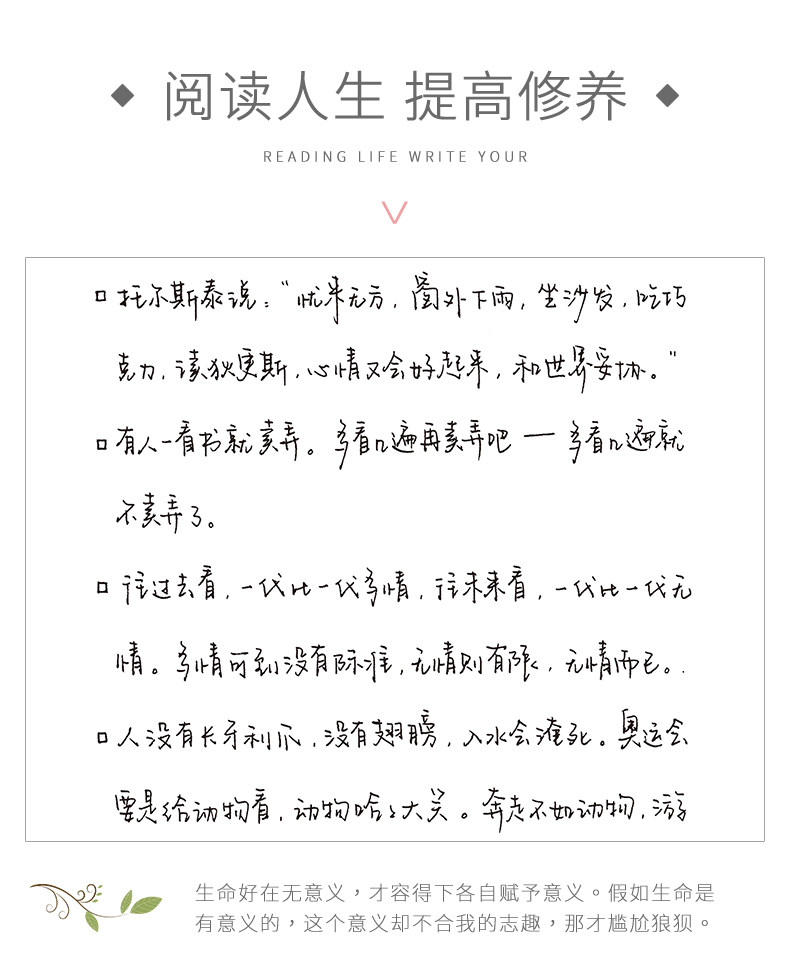 阅读人生 提高修养
READING LIFE WRITE YOUR
托尔斯泰说:“忧来无方,窗外下雨,坐沙发,吃巧
克力,读狄更斯,心情又会好起来,和世界妥协。”
有人一看书就卖弄。多看几遍再卖弄吧 — 多看几遍就
不卖弄了。
往过去看,一代比一代多情,往未来看,一代比一代无
情。多情可到没有际涯,无情则有限,无情而已。.
人没有长牙利爪,没有翅膀,入水会淹死。奥运会
要是给动物看,动物哈哈大笑。奔走不如动物,游
生命好在无意义,才容得下各自赋予意义。假如生命是
有意义的,这个意义却不合我的志趣,那才尴尬狼狈。